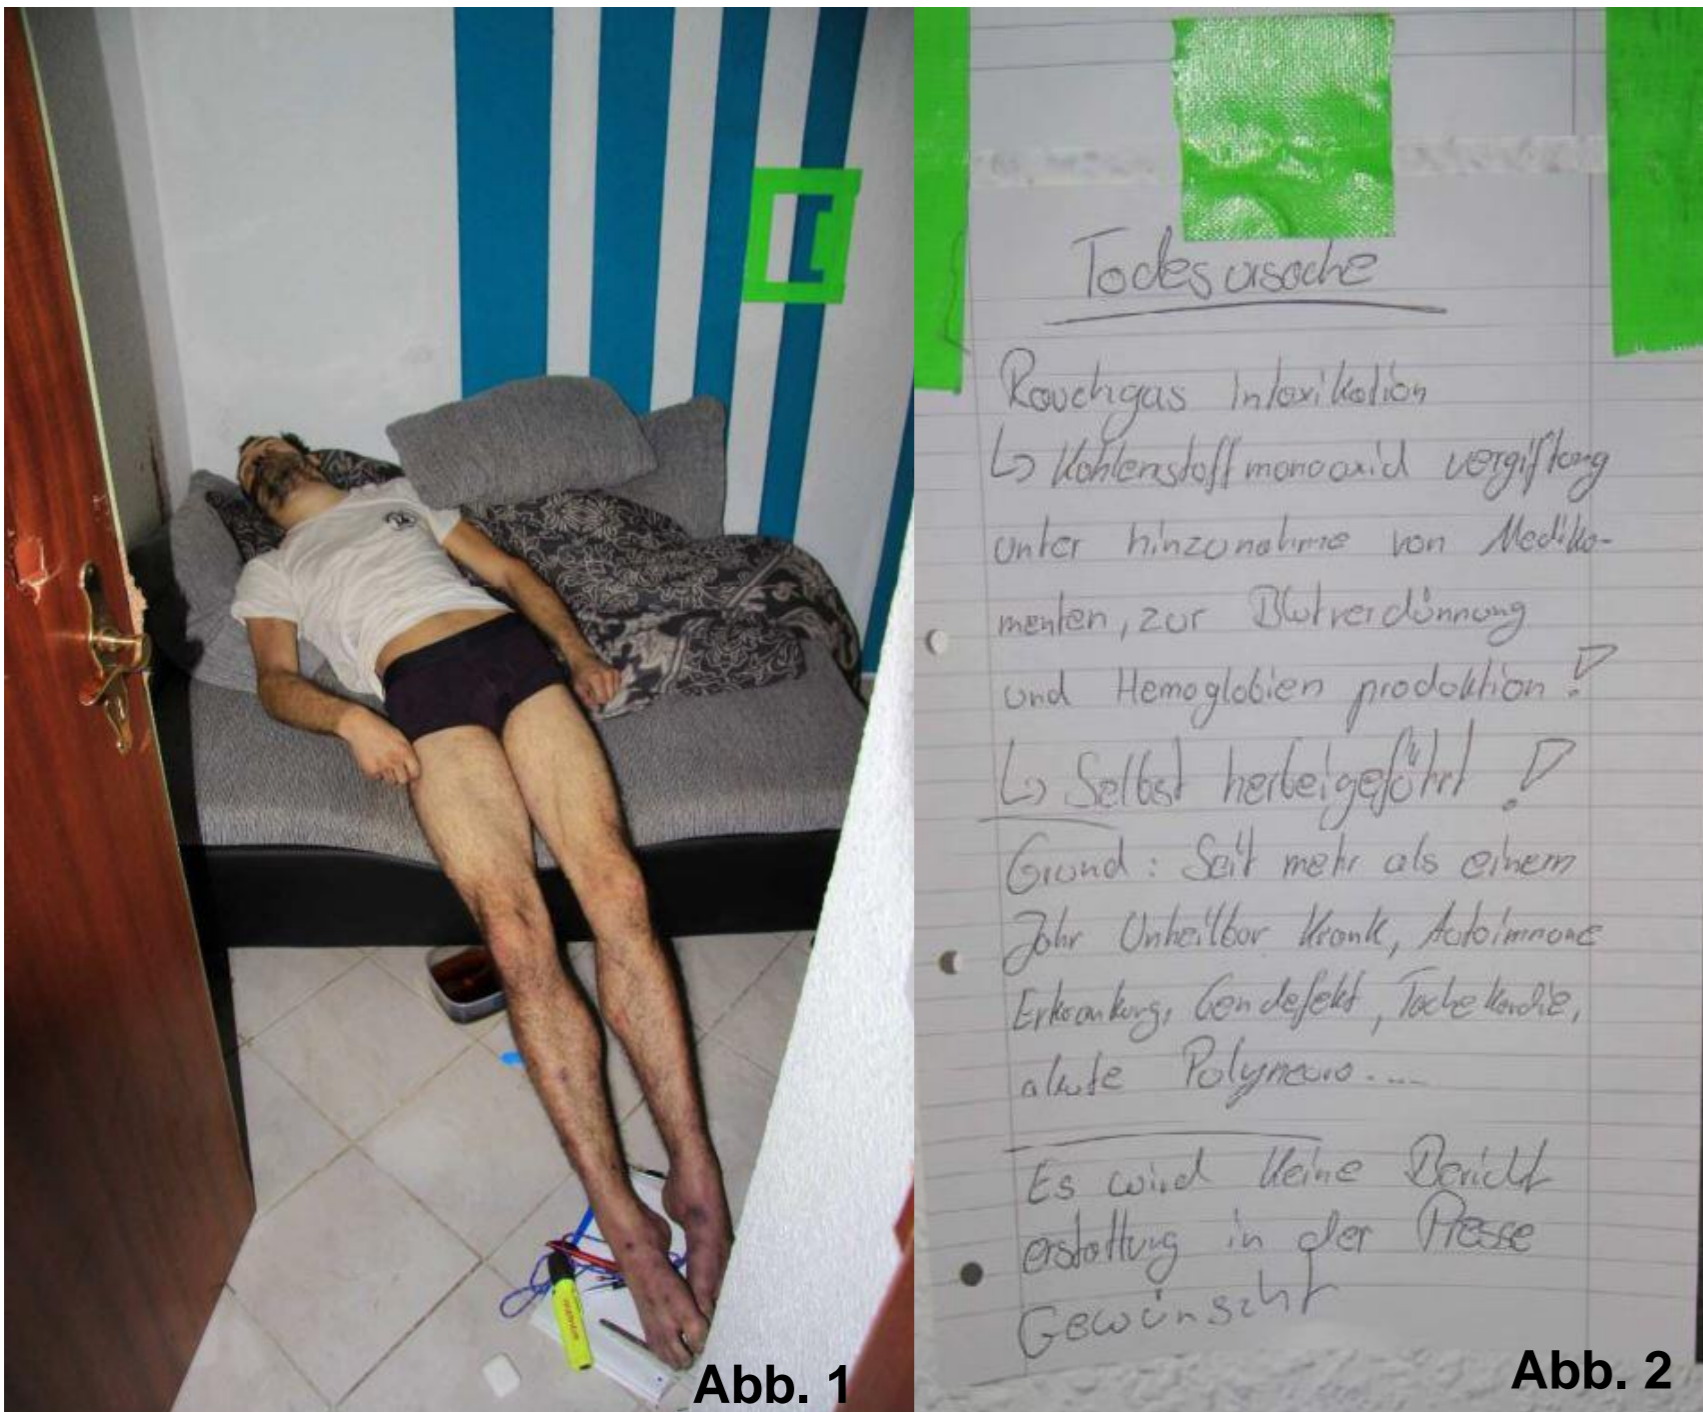 Abb. 1
Todesursache
Rauchgas Intoxikation
↳ Kohlenstoffmonooxid vergiftung
unter hinzunahme von Medika-
menten, zur Blutverdünnung
und Hemoglobien produktion!
↳ Selbst herbeigeführt!
Grund: Seit mehr als einem
Jahr Unheilbar Krank, Autoimmune
Erkrankung, Gendefekt, Tachekardie,
akute Polyneuro....
Es wird keine Bericht
erstattung in der Presse
Gewünscht
Abb. 2